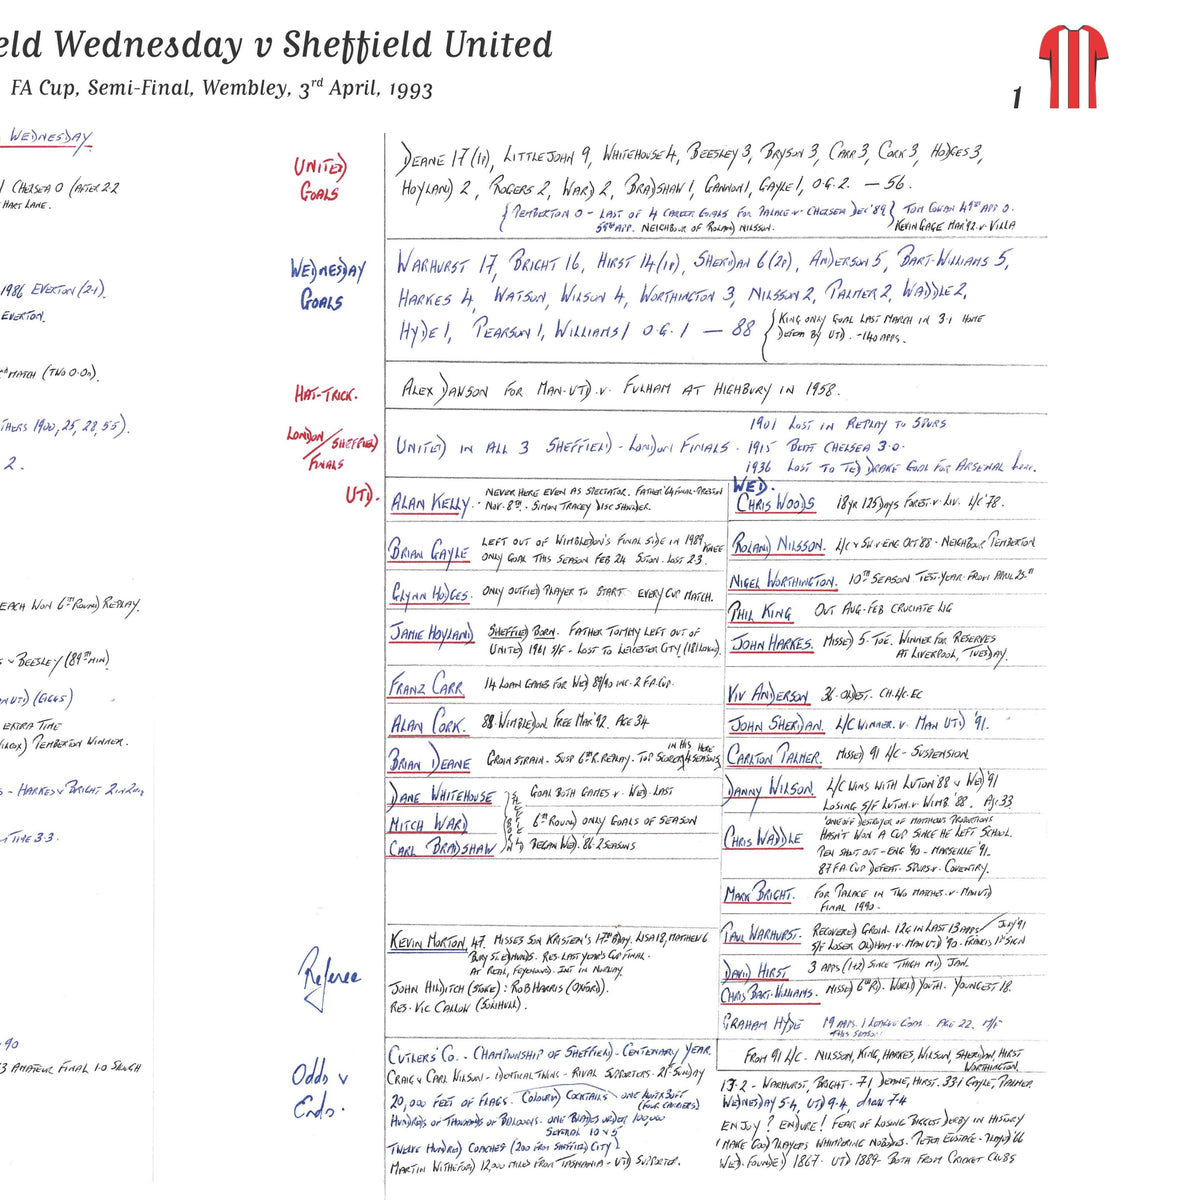 eld Wednesday v Sheffield United
FA Cup, Semi-Final, Wembley, 3rd April, 1993
1
WEDNESDAY
CHELSEA 0 (AFTER 2 2
HART LANE.
1986 EVERTON (2.1).
EVERTON.
MATCH (TWO 0.0s).
THERS 1900, 25, 28, 55).
2.
EACH WON 6TH ROUND REPLAY.
v BEESLEY (89TH MIN)
UTD) (GIGGS)
EXTRA TIME
PEMBERTON WINNER.
- HARKES v BRIGHT 2 IN 2
TIME 3.3.
90
3 AMATEUR FINAL 1.0 SLOUGH
UNITED GOALS
DEANE 17 (1P), LITTLEJOHN 9, WHITEHOUSE 4, BEESLEY 3, BRYSON 3, CARR 3, CORK 3, HODGES 3,
HOYLAND 2, ROGERS 2, WARD 2, BRADSHAW 1, GANNON 1, GAYLE 1, O.G. 2. — 56.
PEMBERTON 0 - LAST OF 4 CAREER GOALS FOR PALACE v. CHELSEA DEC '89 TOM COWAN 49TH APP 0.
59TH APP. NEIGHBOUR OF ROLAND NILSSON. KEVIN GAGE MAR '92 v. VILLA
WEDNESDAY GOALS
WARHURST 17, BRIGHT 16, HIRST 14 (1P), SHERIDAN 6 (2P), ANDERSON 5, BART-WILLIAMS 5,
HARKES 4, WATSON, WILSON 4, WORTHINGTON 3, NILSSON 2, PALMER 2, WADDLE 2,
HYDE 1, PEARSON 1, WILLIAMS 1 O.G. 1 — 88
KING ONLY GOAL LAST MARCH IN 3.1 HOME
DEFEAT BY UTD. - 140 APPS.
HAT-TRICK.
ALEX DAWSON FOR MAN.UTD. v. FULHAM AT HIGHBURY IN 1958.
LONDON/SHEFFIELD FINALS
UNITED IN ALL 3 SHEFFIELD - LONDON FINALS.
1901 LOST IN REPLAY TO SPURS
1915 BEAT CHELSEA 3.0.
1936 LOST TO TED DRAKE GOAL FOR ARSENAL here.
UTD.
ALAN KELLY. NEVER HERE EVEN AS SPECTATOR. FATHER '64 FINAL-PRESTON
NOV. 8TH - SIMON TRACEY DISC SHOULDER.
BRIAN GAYLE LEFT OUT OF WIMBLEDON'S FINAL SIDE IN 1989 KNEE
ONLY GOAL THIS SEASON FEB 24 LOST 2.3.
GLYNN HODGES. ONLY OUTFIELD PLAYER TO START EVERY CUP MATCH.
JAMIE HOYLAND SHEFFIELD BORN. FATHER TOMMY LEFT OUT OF
UNITED 1961 S/F - LOST TO LEICESTER CITY
FRANZ CARR 14 LOAN GAMES FOR WED 89/90 INC. 2 F.A. CUP.
ALAN CORK. 88. WIMBLEDON FREE MAR '92. AGE 34
BRIAN DEANE GROIN STRAIN - SUSP 6TH R. REPLAY. TOP SCORER IN HIS 4 SEASONS HERE
DANE WHITEHOUSE GOAL BOTH GAMES v. WED. LAST
MITCH WARD 6TH ROUND ONLY GOALS OF SEASON
CARL BRADSHAW BEGAN WED. '86 2 SEASONS
WED.
CHRIS WOODS 18YR 125 DAYS FOREST v. LIV. L/C '78.
ROLAND NILSSON. NEIGHBOUR PEMBERTON
NIGEL WORTHINGTON. 10TH SEASON TEST. YEAR FROM APRIL 25TH
PHIL KING OUT AUG-FEB CRUCIATE LIG
JOHN HARKES. MISSED 5. TOE. WINNER FOR RESERVES
AT LIVERPOOL, TUESDAY.
VIV ANDERSON 36. OLDEST. CH. L/C. EC
JOHN SHERIDAN. L/C WINNER v. MAN UTD '91.
CARLTON PALMER. MISSED 91 L/C - SUSPENSION.
DANNY WILSON L/C WINS WITH LUTON '88 v WED '91
LOSING S/F LUTON v WIMB. '88. AGE 33.
CHRIS WADDLE
HASN'T WON A CUP SINCE HE LEFT SCHOOL.
PEN SHOOT OUT - ENG '90 - MARSEILLE '91.
87 F.A. CUP DEFEAT. SPURS v. COVENTRY.
MARK BRIGHT. FOR PALACE IN TWO MATCHES v. MAN UTD
FINAL 1990.
PAUL WARHURST. RECOVERED GROIN. 12G IN LAST 13 APPS / JULY '91
S/F LOSER OLDHAM v. MAN UTD '90. FRANCIS 1ST SIGN
DAVID HIRST 3 APPS (1+2) SINCE THIGH MID JAN.
CHRIS BART-WILLIAMS. MISSED 6TH RD. WORLD YOUTH. YOUNGEST 18.
GRAHAM HYDE 19 APPS. 1 LEAGUE GOAL. AGE 22. M/F
THIS SEASON
Referee
KEVIN MORTON 47. MISSES SON KRISTEN'S 17TH B/DAY. LISA 18, MATTHEW 6
BURY ST. EDMUNDS. RES. LAST YEAR'S CUP FINAL.
AT REAL, FEYENOORD. INT IN NORWAY.
JOHN HILDITCH (STOKE): ROB HARRIS (OXFORD).
RES. VIC CALLOW (SOLIHULL).
Odds v Ends.
CUTLERS' CO. - CHAMPIONSHIP OF SHEFFIELD - CENTENARY YEAR.
CRAIG v CARL WILSON - IDENTICAL TWINS - RIVAL SUPPORTERS. 21 SUNDAY
20,000 FEET OF FLAGS. COLOURED COCKTAILS
HUNDREDS OF THOUSANDS OF BALLOONS. 100,000
TWELVE HUNDRED COACHES (200 FROM SHEFFIELD CITY)
MARTIN WITHEFORD 12,000 MILES FROM TASMANIA - UTD SUPPORTER.
FROM 91 L/C. NILSSON, KING, HARKES, WILSON, SHERIDAN, HIRST
WORTHINGTON.
13.2 - WARHURST, BRIGHT. 7.1, DEANE, HIRST. 33.1 GAYLE, PALMER
WEDNESDAY 5.4, UTD 9.4, draw 7.4
ENJOY? ENDURE! FEAR OF LOSING BIGGEST DERBY IN HISTORY
MAKE GOOD PLAYERS WHIMPERING NOBODIES. PETER EUSTACE - PLAYED '66
WED. FOUNDED 1867. UTD 1889 - BOTH FROM CRICKET CLUBS